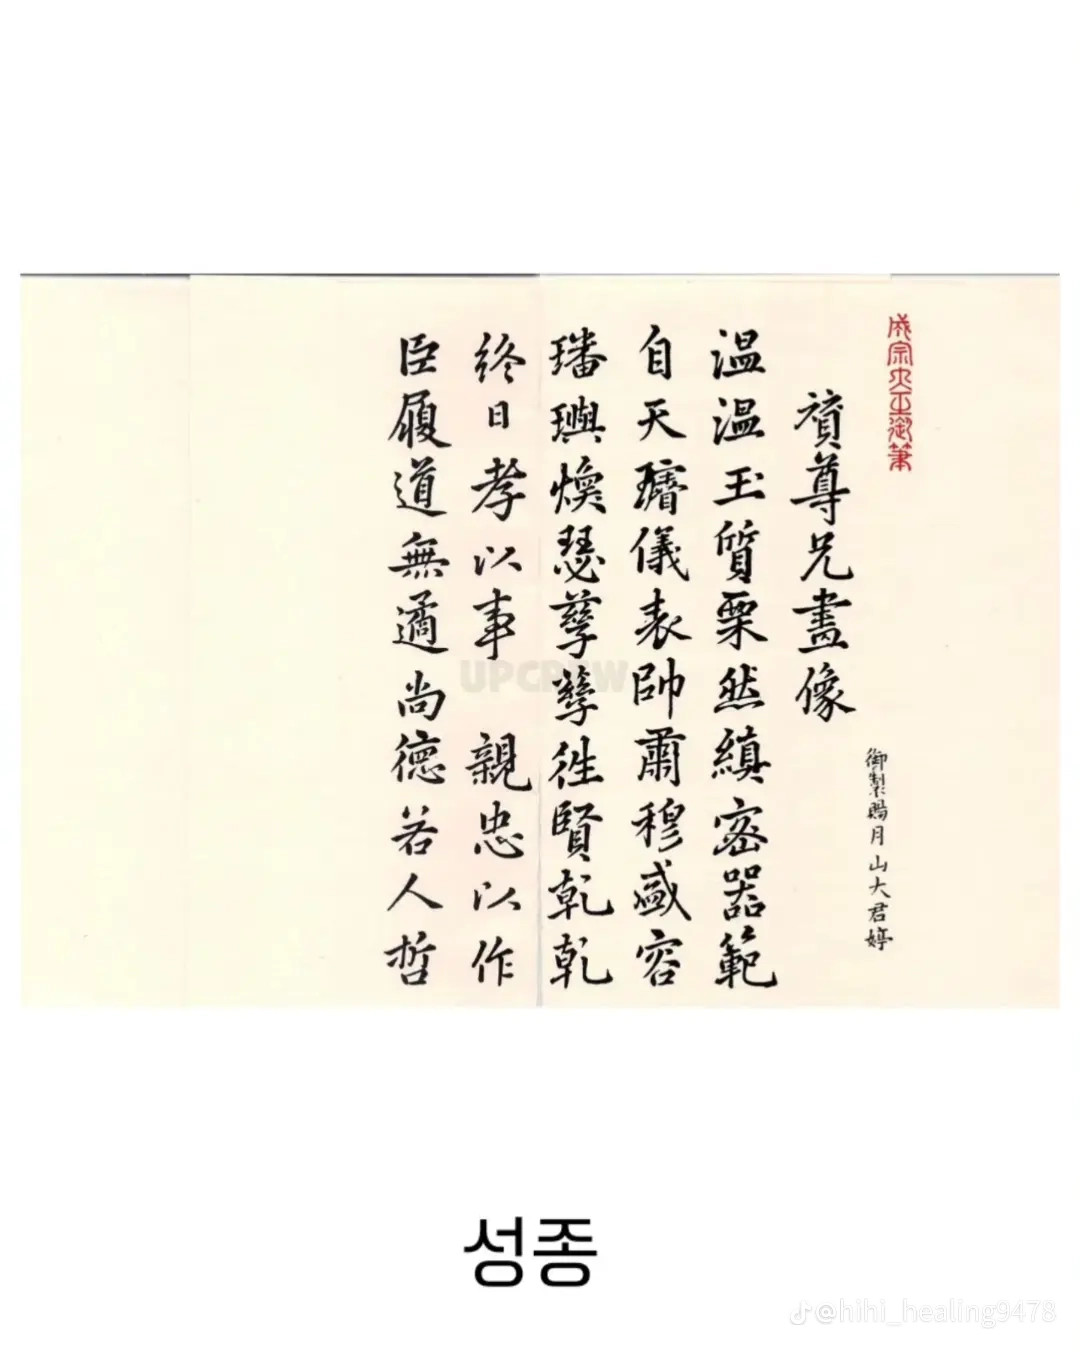 成宗大王御筆
御製賜月山大君婷
贊尊兄畫像
溫溫玉質栗然縝密器範
自天璿儀表帥肅穆盛容
璠璵煥瑟孳孳徃賢乾乾
終日孝以事 親忠以作
臣履道無適尚德若人哲
UPCREW
성종
@hihi_healing9478